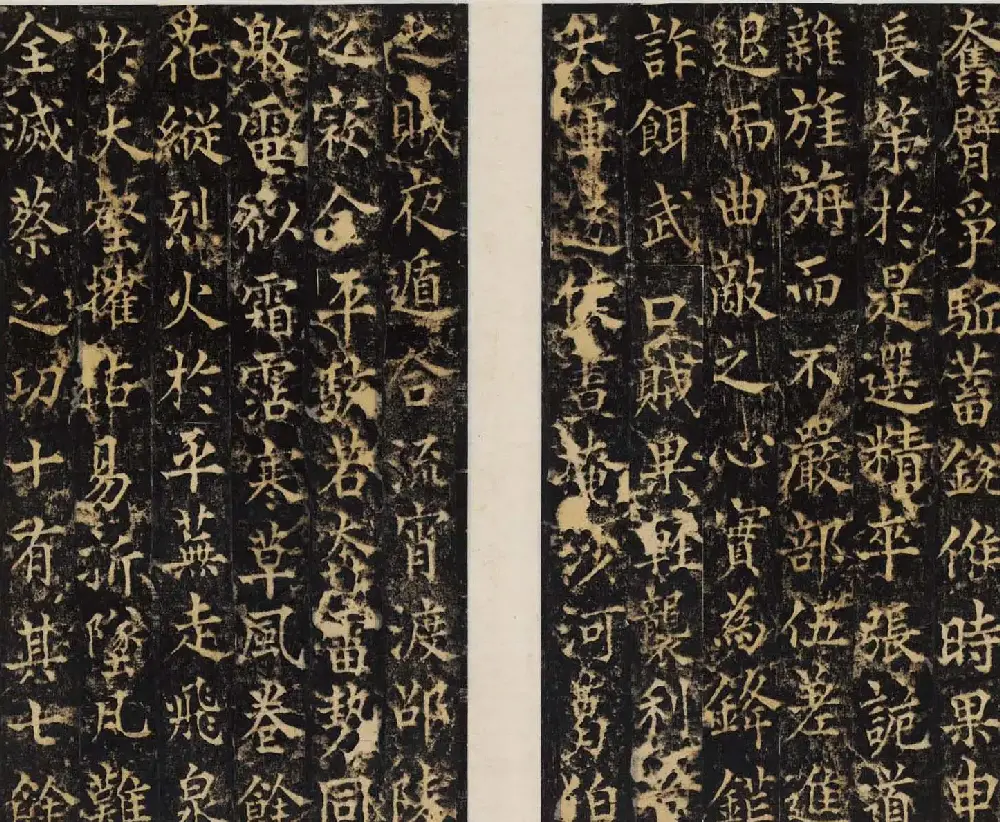 奮臂爭驅蓄銳時果申
長策於是選精卒張詭道
雜旌旃而不嚴部伍差進
退而曲敵之心實為鋒鎧
詐餌武口賊果輕襲利
失軍沙河伯
之賊夜遁合流宵渡邵陵
之寇合平若奔雷勢同
激電欲霜霑寒草風卷餘
花縱烈火於平蕪走飛泉
於大壑摧枯易折墜凡難
全滅蔡之功十有其七餘